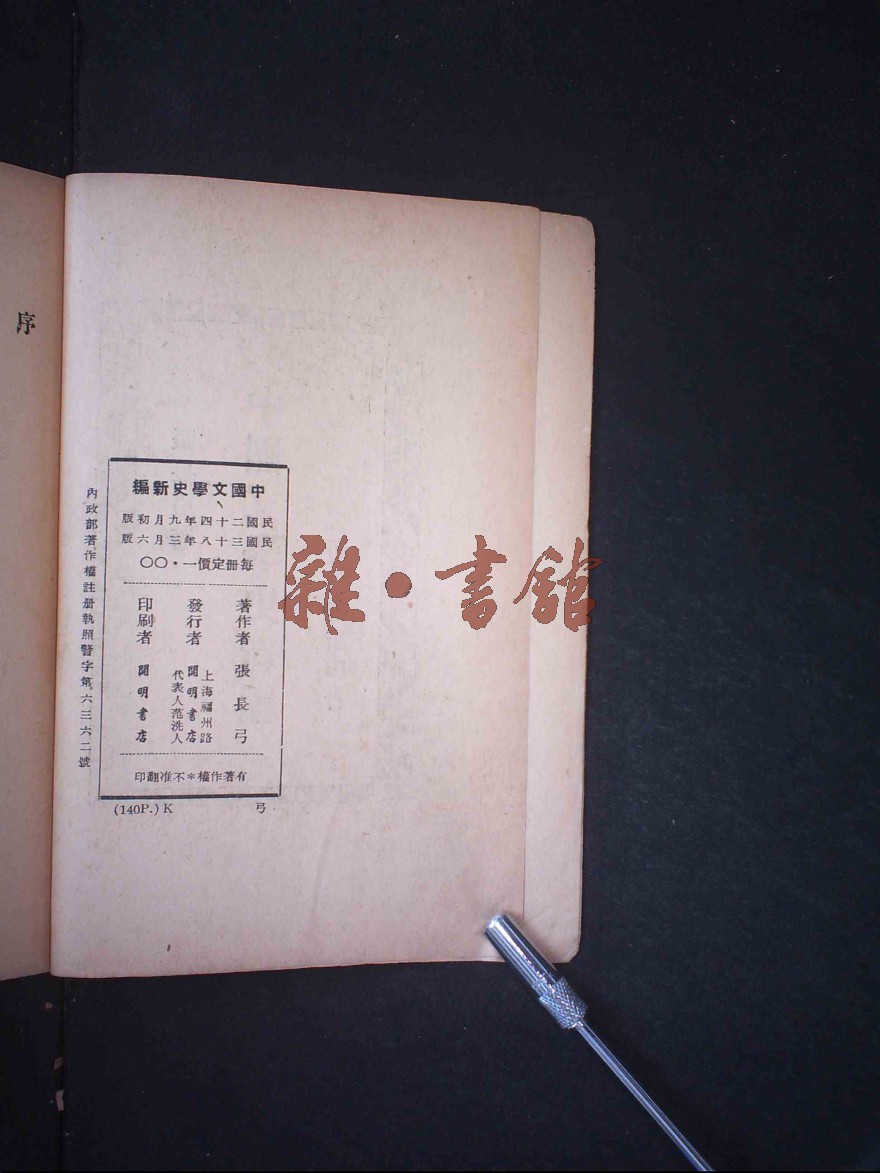 中國文學史新編
民國二十四年九月初版
民國三十八年三月六版
每冊定價一·〇〇
著作者 張長弓
發行者 上海福州路 開明書店 代表人范洗人
印刷者 開明書店
有著作權＊不准翻印
內政部著作權註册執照警字第六三六二號
(140P.) K
弓
序
雜·書館